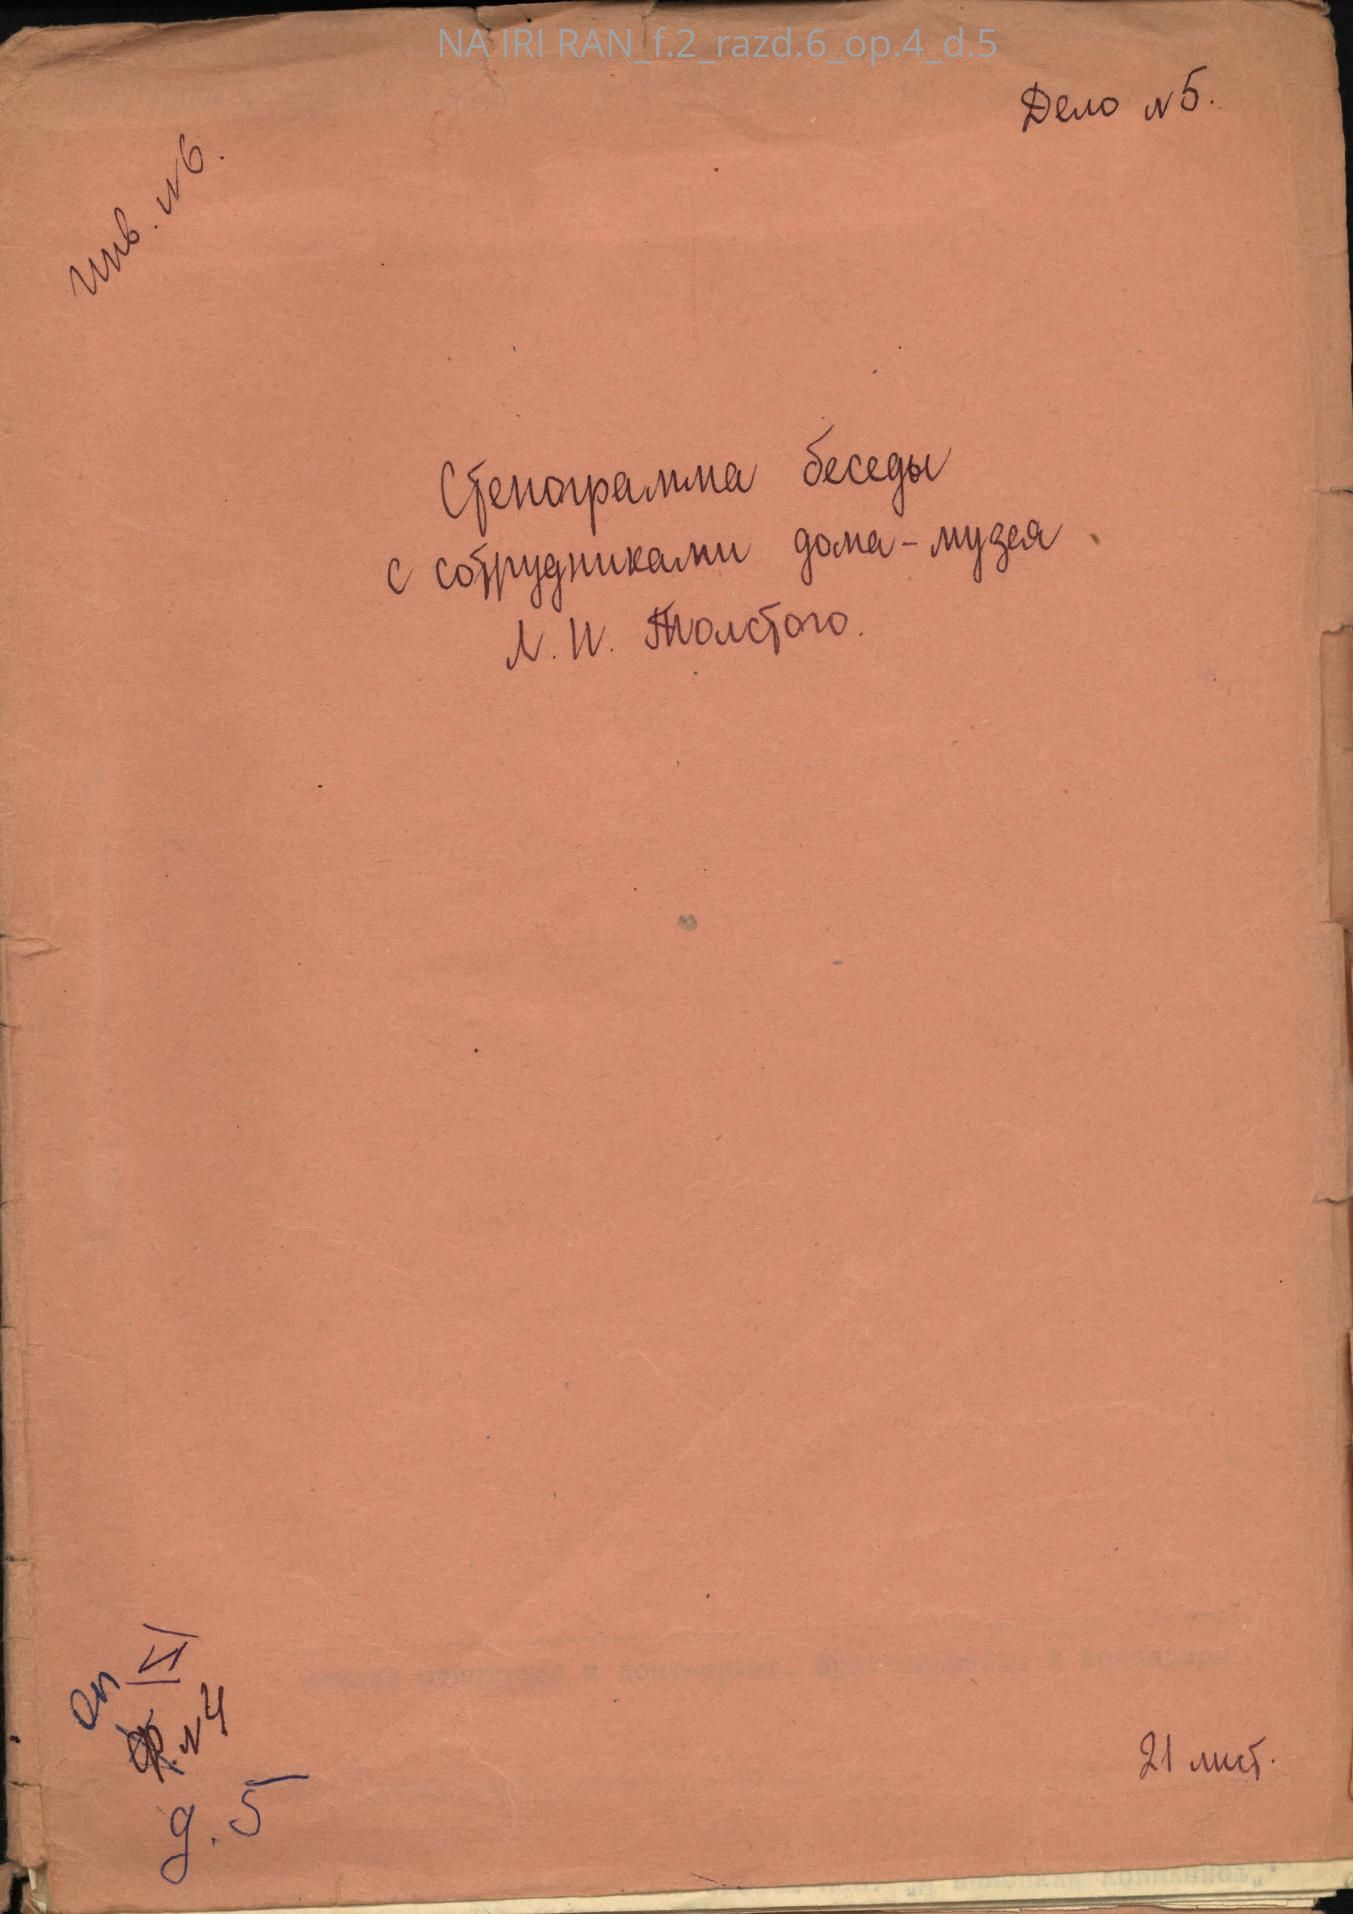 NA IRI RAN_f.2_razd.6_op.4_d.5
Дело №5.
Инв. №6.
Стенограмма беседы
с сотрудниками дома-музея
Л. Н. Толстого.
VI
оп
Ф. №4
д. 5
21 лист.